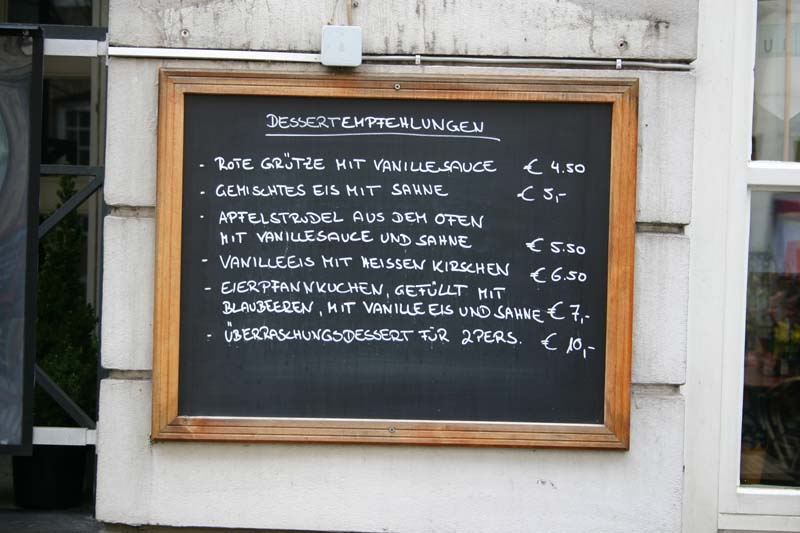 DESSERTEMPFEHLUNGEN
- ROTE GRÜTZE MIT VANILLESAUCE € 4.50
- GEMISCHTES EIS MIT SAHNE € 5,-
- APFELSTRUDEL AUS DEM OFEN
MIT VANILLESAUCE UND SAHNE € 5.50
- VANILLEEIS MIT HEISSEN KIRSCHEN € 6.50
- EIERPFANNKUCHEN, GEFÜLLT MIT
BLAUBEEREN, MIT VANILLEEIS UND SAHNE € 7,-
- ÜBERRASCHUNGSDESSERT FÜR 2 PERS. € 10,-